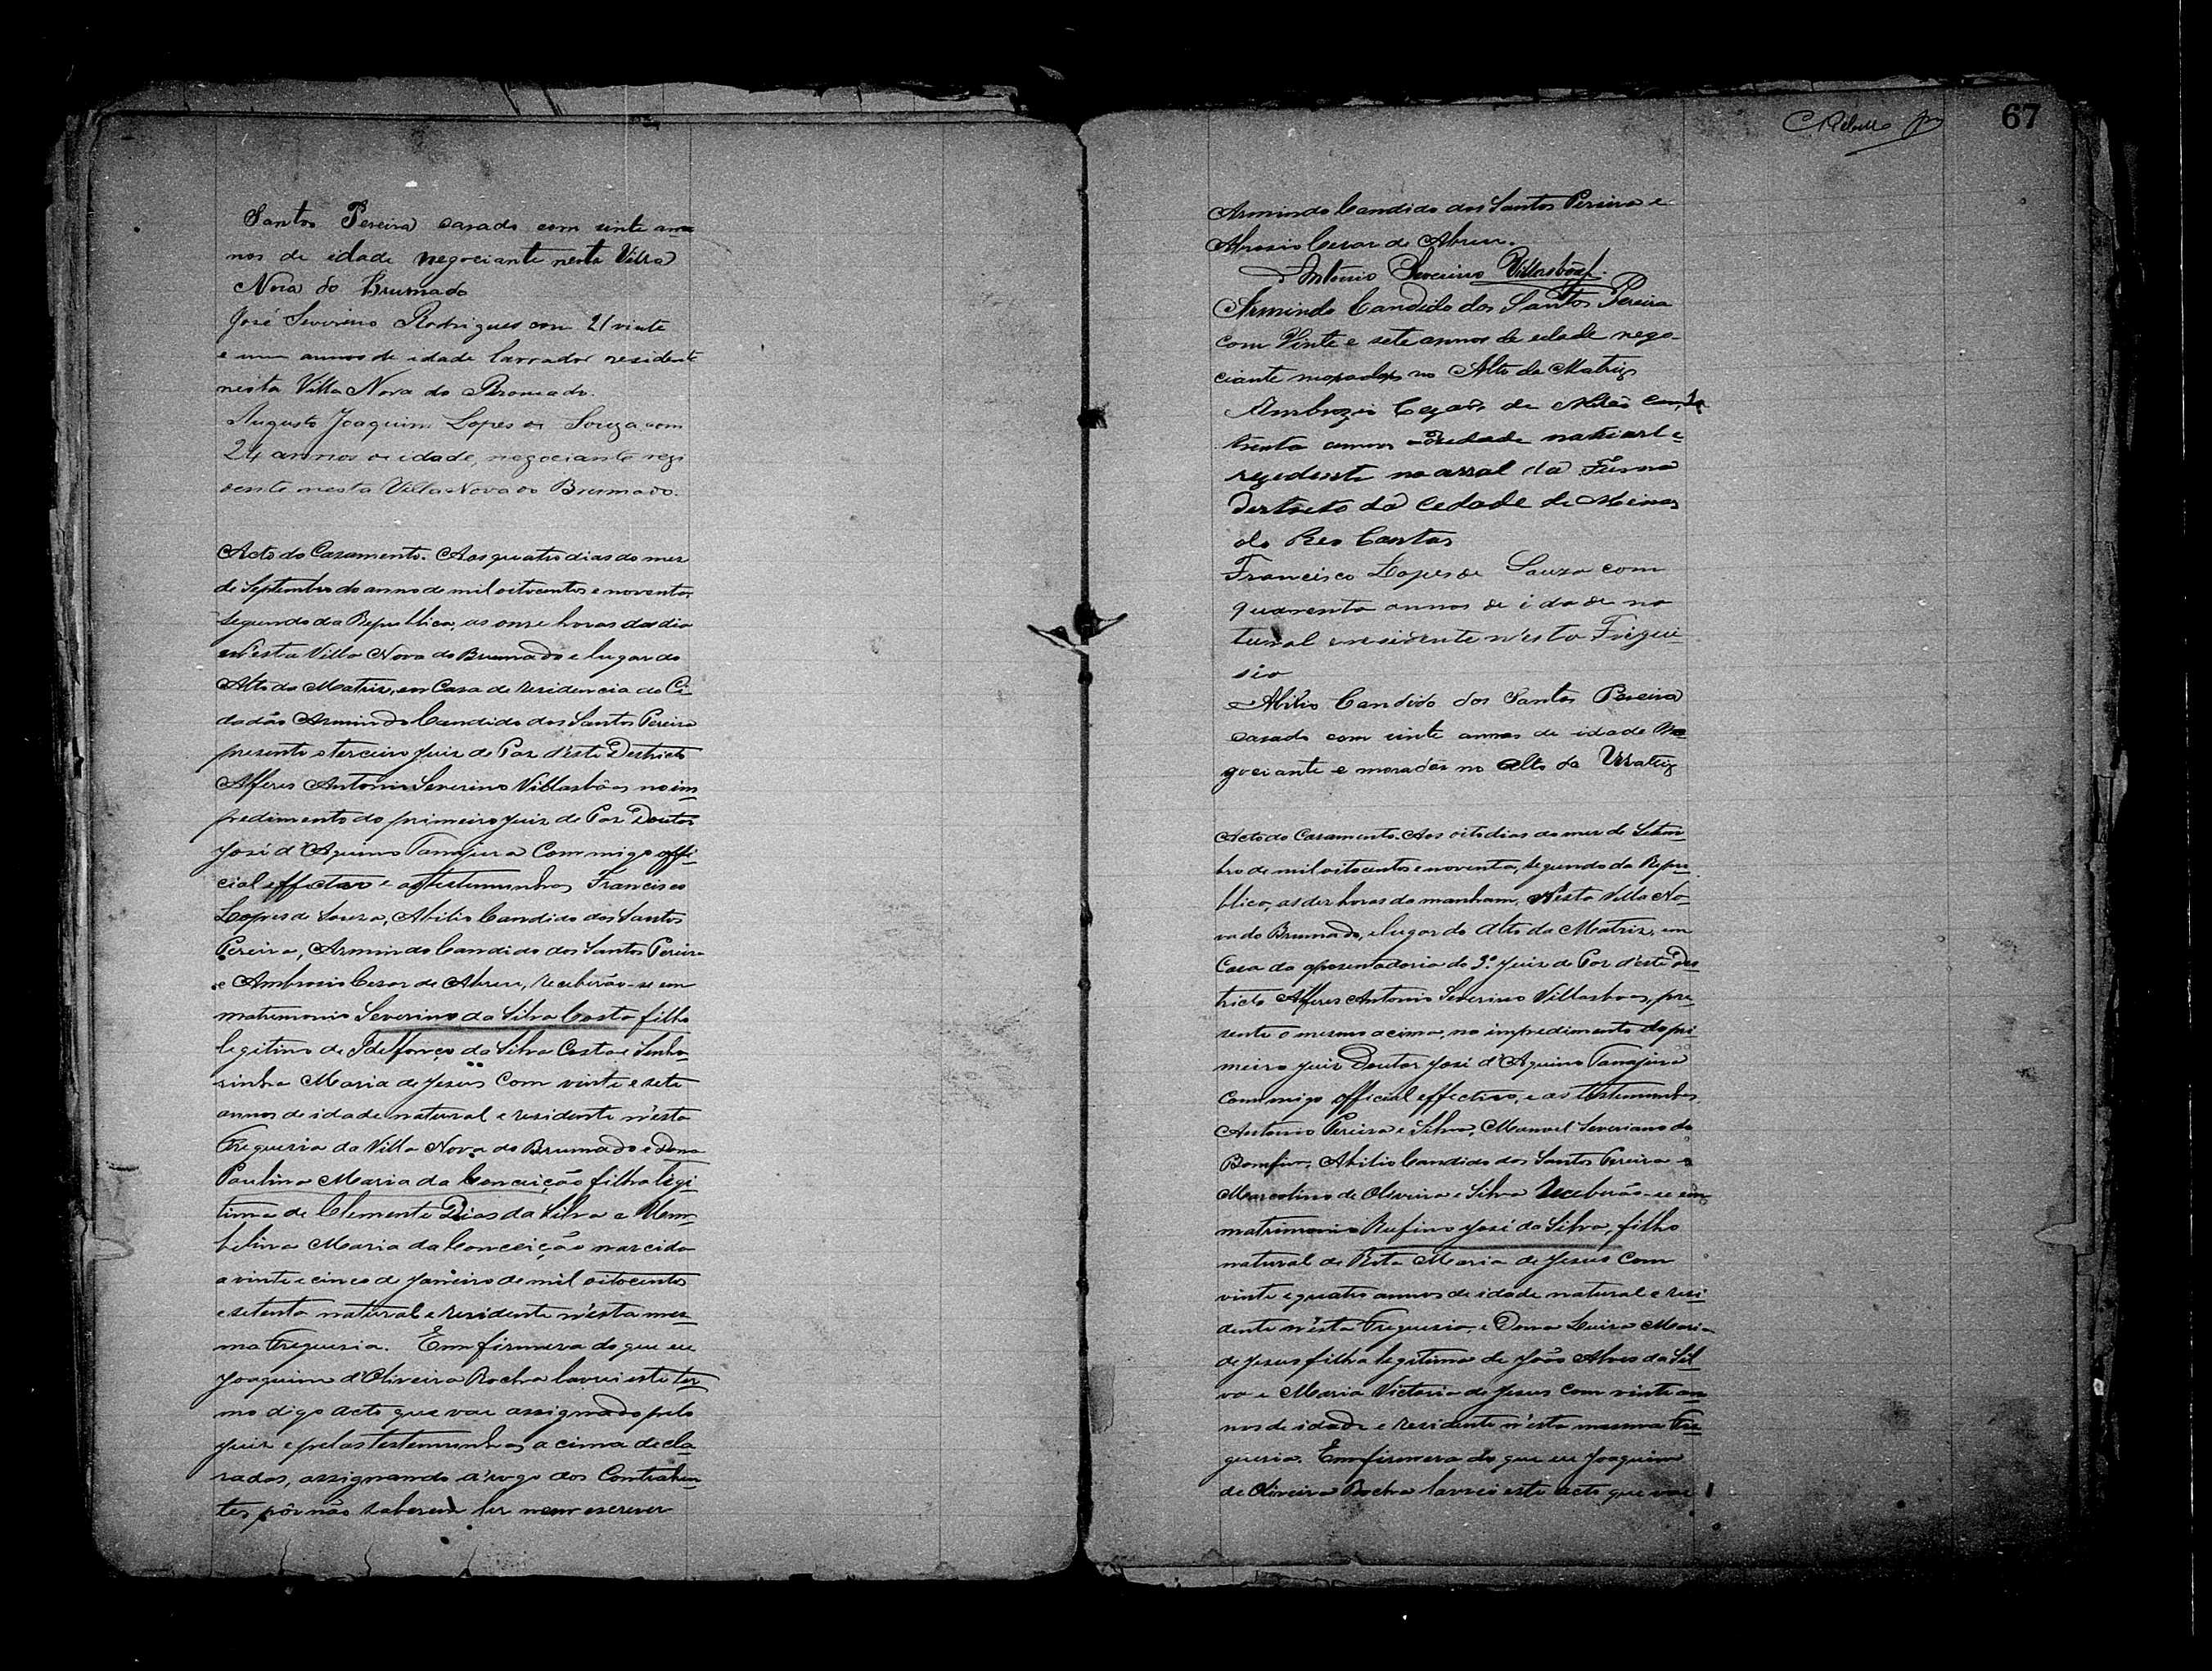 Santos Pereira casado com vinte ann
nos de idade negociante nesta Villa
Nova do Brumado
José Severino Rodrigues com 21 vinte
e um annos de idade lavrador residente
nesta Villa Nova do Bromado.
Augusto Joaquim Lopes de Souza, com
24 annos de idade, negociante rezi
dente nesta Villa Nova do Brumado.
Acto do Casamento. Aos quatro dias do mez
de Septembro do anno de mil oitocentos e noventa,
segundo da Republica, as onze horas do dia
n'esta Villa Nova do Brumado e lugar do
Alto da Matriz, em Casa de residencia do Ci-
dadão Armindo Candido dos Santos Pereira
presente o terceiro Juiz de Paz d'este Destricto
Alferes Antonio Severino Villasbôas no im-
pedimento do primeiro juiz de Paz Doutor
José d'Aquino Tanajura Commigo offi-
cial effectivo e as testemunhas Francisco
Lopes de Souza, Abilio Candido dos Santos
Pereira, Armindo Candido dos Santos Pereira
e Ambrosio Cesar de Abreu, receberão-se em
matremonio Severino da Silva Costa filho
legitimo de Idelfonço da Silva Costa e Senho-
rinha Maria de Jesus Com vinte e sete
annos de idade natural e residente n'esta
Freguesia da Villa Nova do Brumado e Dona
Paulina Maria da Conceição filha legi-
tima de Clemente Dias da Silva e Um-
bilina Maria da Conceição nascida
a vinte e cinco de Janeiro de mil oitocentos
e setenta natural e residente n'esta mes-
ma Freguesia. Em firmesa do que eu
Joaquim d'Oliveira Rocha lavrei este ter-
mo digo acto que vae assignado pelo
juiz e pelas testemunhas acima decla-
radas, assignando a rogo dos Contrahen-
tes pôr não saberem ler nem escrever
67
Armindo Candido dos Santos Pereira e
Abrosio Cesar de Abreu.
Antonio Severino Villasbôas
Armindo Candido dos Santos Pereira
com Vinte e sete annos de edade nego-
ciante morador no Alto da Matriz
Ambrozio Cezar de
trinta annos edade e
rezedente no arral da Furna
Destreto da Cedade de Minas
do Reo Contas
Francisco Lopes de Souza com
quarenta annos de idade na
tural e residente n'esta Fregui
sia
Abilio Candido dos Santos Pereira
casado com vinte annos de idade ne
gociante e morador no alto da Matriz
Acto do Casamento. Aos oito dias do mez de Setem-
bro de mil oitocentos e noventa, segundo da Repu-
blica, as dez horas da manham, N'esta Villa No-
va do Brumado, e lugar do Alto da Matriz, em
Casa da aposentadoria do 3º Juiz de Paz d'este Des-
tricto Alferes Antonio Severino Villasboas, pre-
sente o mesmo acima, no impedimento do pri-
meiro juiz Doutor José d'Aquino Tanajura
Commigo official effectivo, e as testemunhas
Antonio Pereira e Silva, Manoel Severiano do
Bomfim, Abilio Candido dos Santos Pereira e
Marcolino de Oliveira e Silva Receberão-se em
matrimonio Rufino José da Silva, filho
natural de Rita Maria de Jesus Com
vinte e quatro annos de idade natural e resi-
dente n'esta Freguesia, e Dona Luisa Maria
de Jesus filha legitima de João Alves da Sil-
va e Maria Victoria de Jesus com vinte an-
nos de idade e residente n'esta mesma Fre-
guesia. Em firmesa do que eu Joaquim
de Oliveira Rocha lavrei este acto que vae